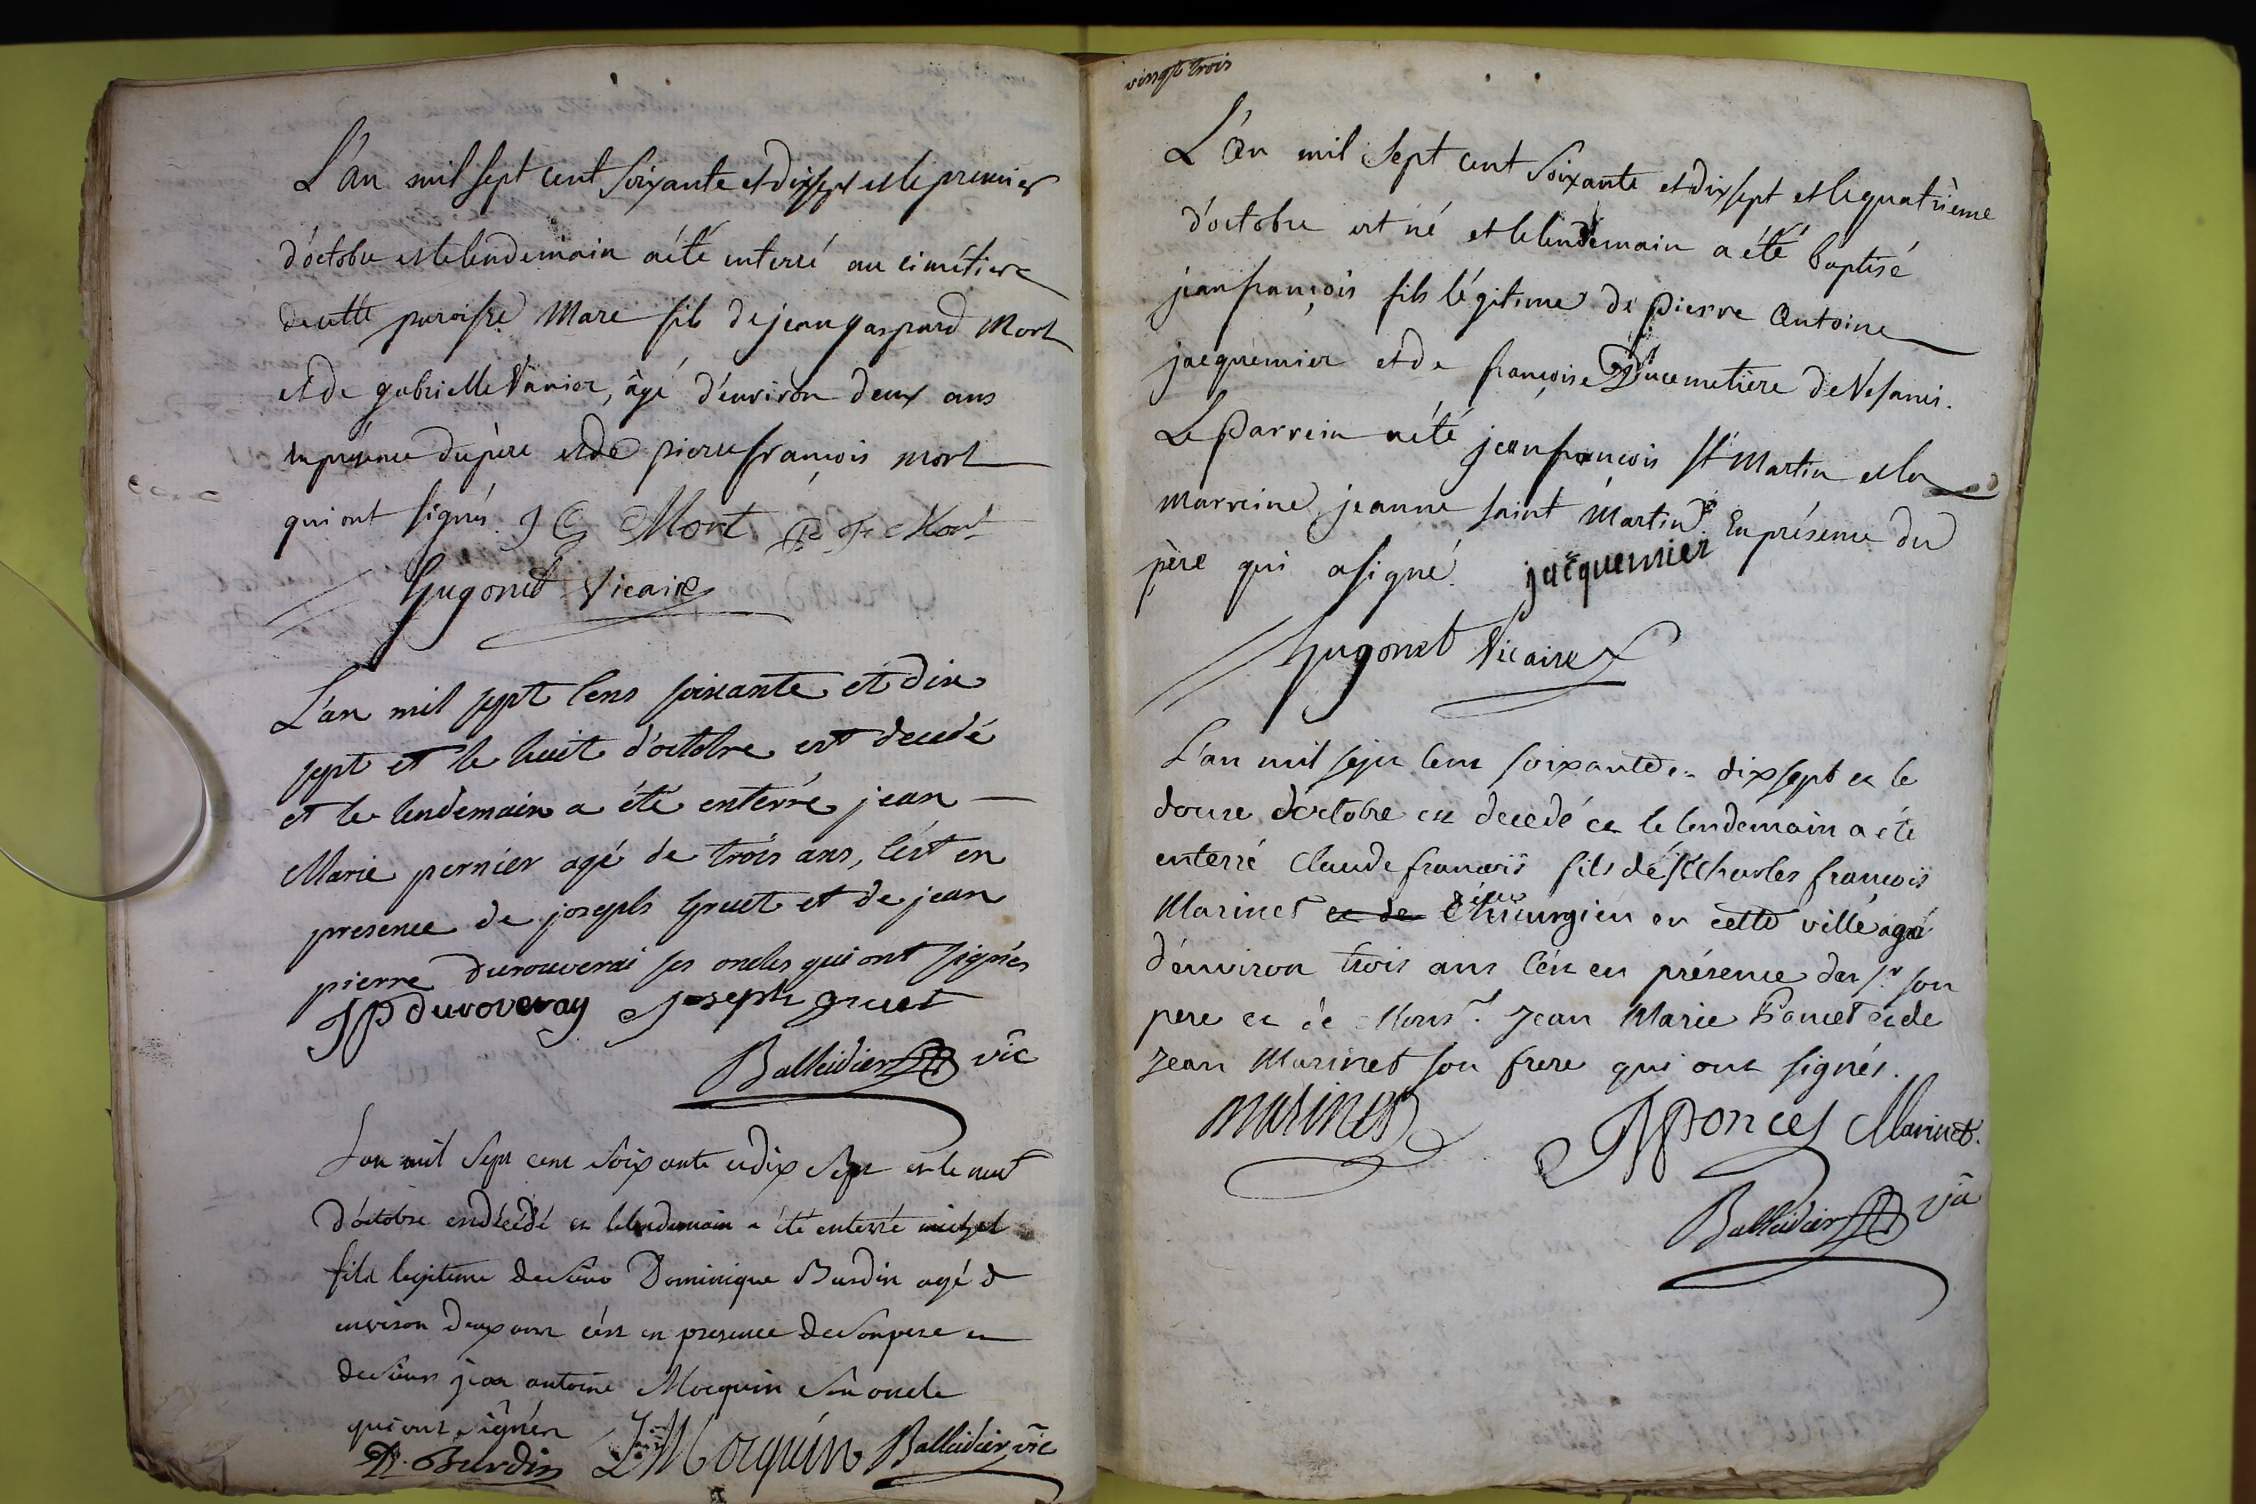 L'an mil sept cent soixante et dix sept et le premier
d'octobre et le lendemain a été enterré au cimétiere
de cette paroisse Marc fils de jean gaspard Mort
et de gabrielle Vanier, âgé d'environ deux ans
en présence du père et de pierre françois mort
qui ont signés. J G Mort P F Mort
hugonet Vicaire
L'an mil sept cens soixante et dix
sept et le huit d'octobre est decedé
et le lendemain a été enterré jean
Marie pernier agé de trois ans, c'est en
presence de joseph gruet et de jean
pierre durouverai ses oncles qui ont signés
JP durouveray joseph gruet
Balleidier vic
L'an mil sept cent soixante et dix sept et le neuf
d'octobre est décédé et le lendemain a été enterré michel
fils legitime de sieur Dominique Burdin agé d
environ deux ans c'est en presence de son pere et
de sieur jean antoine Mocquin son oncle
qui ont signés
D. Burdin Mocquin Balleidier vic
vingt trois
L'an mil sept cent soixante et dix sept et le quatrième
d'octobre est né et le lendemain a été baptisé
jean françois fils légitime de pierre Antoine
jacquemier et de françoise Ducemetiere de Vesanci.
Le parrein a été jean françois St Martin et la
marreine jeanne saint Martin. En présence du
père qui a signé. jacquemier
hugonet Vicaire
L'an mil sept cent soixante et dix sept et le
douze d'octobre est decedé et le lendemain a été
enterré Claude françois fils de Sr Charles françois
Marinet et de Chirurgien en cette ville agé
d'environ trois ans c'est en présence du Sr son
pere et de Monsr. Jean Marie Poncet et de
Jean Marinet son frere qui ont signés.
marinet JM Poncet Marinet.
Balleidier vic